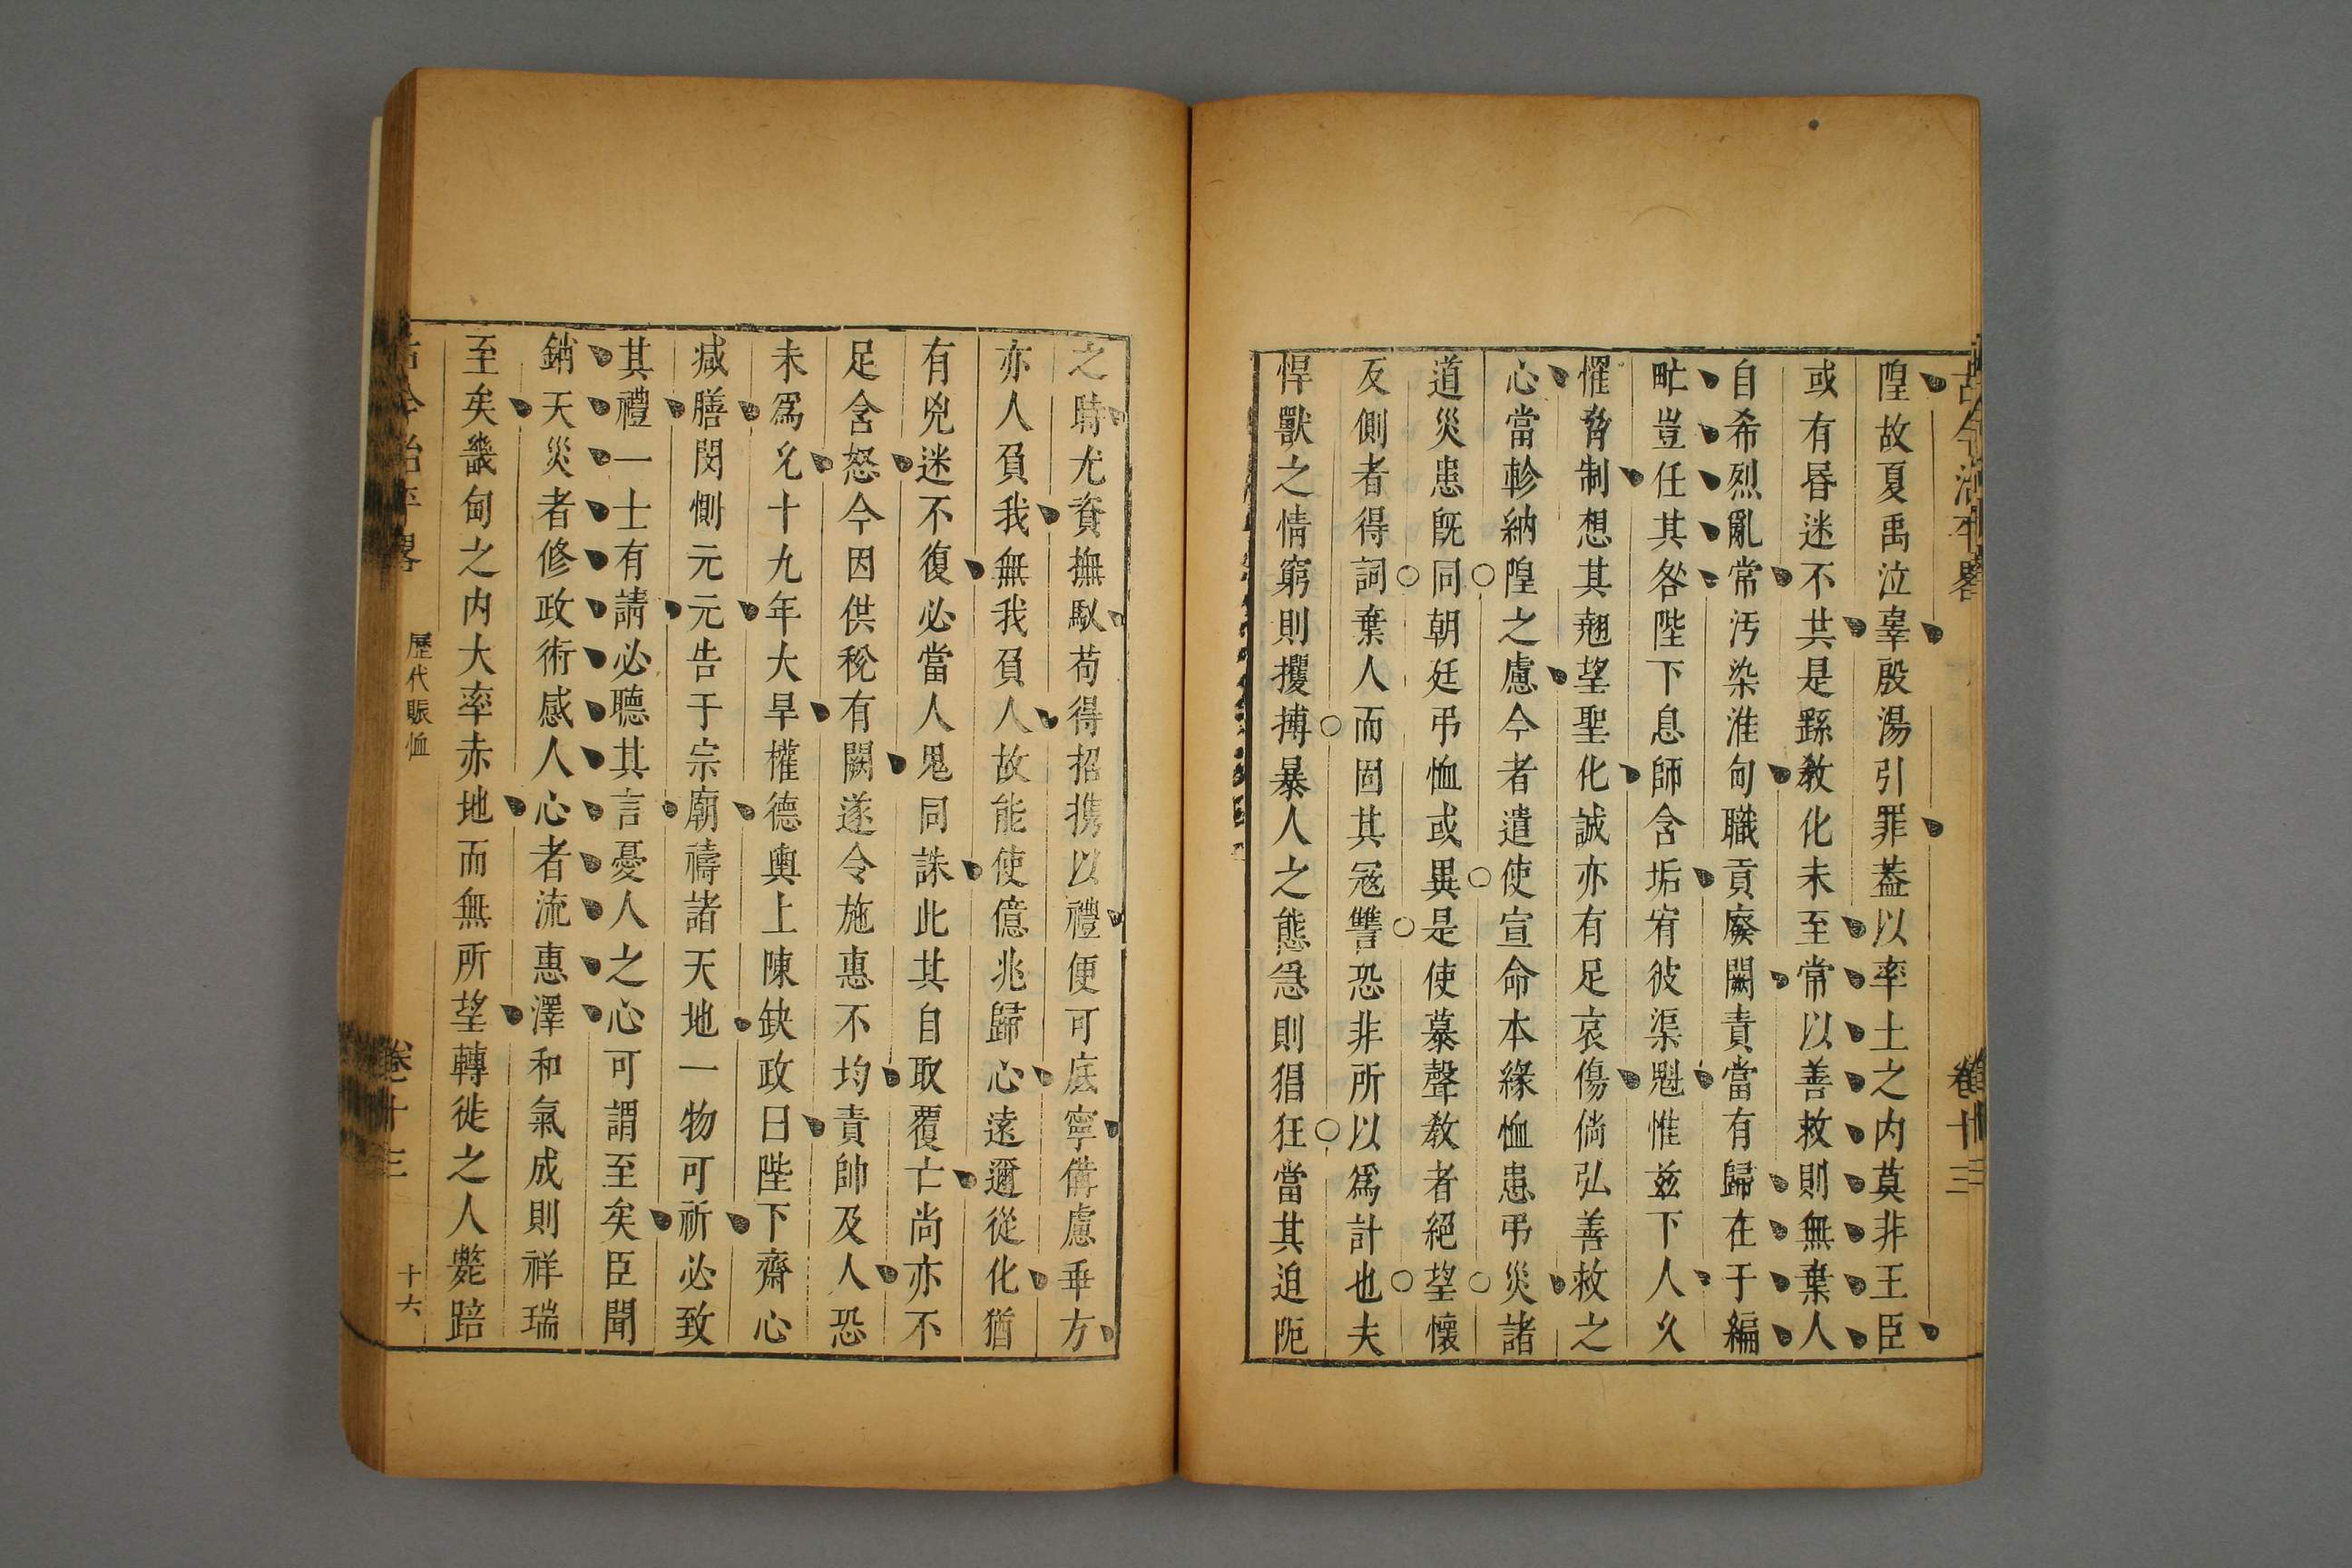 古今治平畧
卷十三
隍故夏禹泣辜殷湯引罪葢以率土之内莫非王臣
或有昬迷不共是繇教化未至常以善救則無棄人
自希烈亂常汚染淮甸職貢廢闕責當有歸在于編
甿豈任其咎陛下息師含垢宥彼渠魁惟兹下人久
罹脅制想其翹望聖化誠亦有足哀傷倘弘善救之
心當軫納隍之慮今者遣使宣命本緣恤患弔災諸
道災患旣同朝廷弔恤或異是使慕聲教者絕望懷
反側者得詞棄人而固其冦讐恐非所以爲計也夫
悍獸之情窮則攫搏暴人之態急則猖狂當其迫阨
之時尤資撫馭苟得招携以禮便可底寧備慮乖方
亦人負我無我負人故能使億兆歸心遠邇從化猶
有兇迷不復必當人鬼同誅此其自取覆亡尚亦不
足含怒今因供稅有闕遂令施惠不均責帥及人恐
未爲允十九年大旱權德輿上陳缺政曰陛下齋心
减膳閔惻元元告于宗廟禱諸天地一物可祈必致
其禮一士有請必聽其言憂人之心可謂至矣臣聞
銷天災者修政術感人心者流惠澤和氣成則祥瑞
至矣畿甸之内大率赤地而無所望轉徙之人斃踣
古今治平畧
歷代賑恤
卷十三
十六